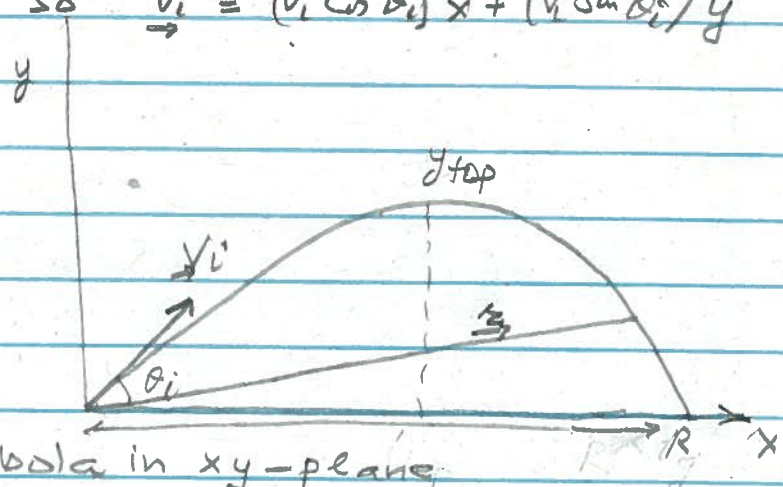 v_i = (v_i cos θ_i) x + (v_i sin θ_i) y
y
y top
v_i
θ_i
R X
bola in xy-plane